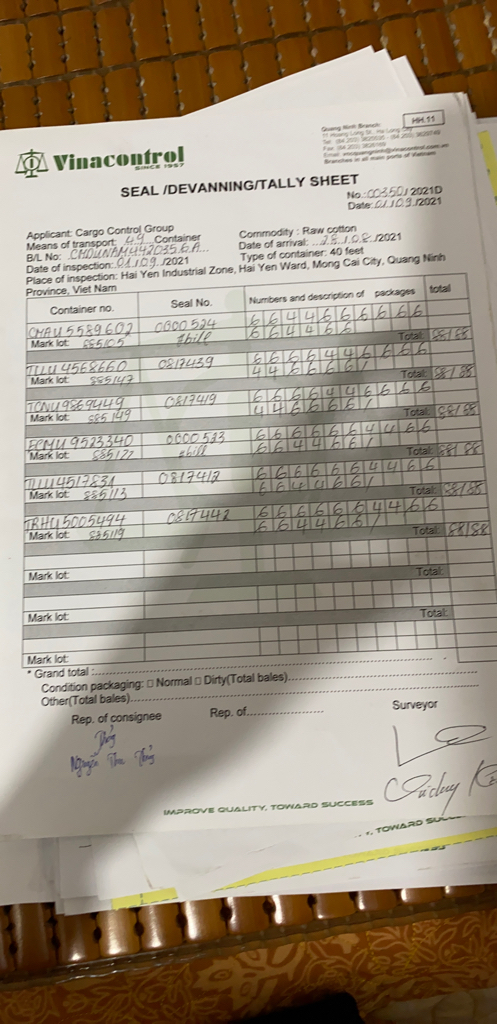 HH.11
Quang Ninh Branch:
Vinacontrol
SINCE 1957
Branches in all main ports of Vietnam
SEAL /DEVANNING/TALLY SHEET
No.: 003501/2021D
Date: 01/09/2021
Applicant: Cargo Control Group
Commodity : Raw cotton
Means of transport: 49 Container
Date of arrival: 28/08/2021
B/L No: CMDUNAM4420356A
Type of container: 40 feet
Date of inspection: 01/09/2021
Place of inspection: Hai Yen Industrial Zone, Hai Yen Ward, Mong Cai City, Quang Ninh
Province, Viet Nam
Container no. Seal No. Numbers and description of packages total
CMAU5589602 0000524 6 6 4 4 6 6 6 6 6 6
Mark lot: 885105 #bill 6 6 4 4 6 6 Total: 88/88
TLLU4568660 0817439 6 6 6 6 4 4 6 6 6 6
Mark lot: 885147 4 4 6 6 6 6 / Total: 88/88
TCNU9869449 0817419 6 6 6 6 4 4 6 6 6 6
Mark lot: 885149 4 4 6 6 6 6 / Total: 88/88
ECMU9523340 0000523 6 6 6 6 6 6 4 4 6 6
Mark lot: 885122 #bill 6 6 4 4 6 6 / Total: 88/88
TLLU4517831 0817412 6 6 6 6 6 6 4 4 6 6
Mark lot: 885113 6 6 4 4 6 6 / Total: 88/88
TRHU5005494 0817442 6 6 6 6 6 6 4 4 6 6
Mark lot: 885119 6 6 4 4 6 6 / Total: 88/88
Mark lot: Total:
Mark lot: Total:
Mark lot:
* Grand total :
Condition packaging: □ Normal □ Dirty(Total bales)
Other(Total bales)
Rep. of consignee Rep. of Surveyor
Thủy
Nguyễn Thu Thủy
IMPROVE QUALITY, TOWARD SUCCESS
, TOWARD